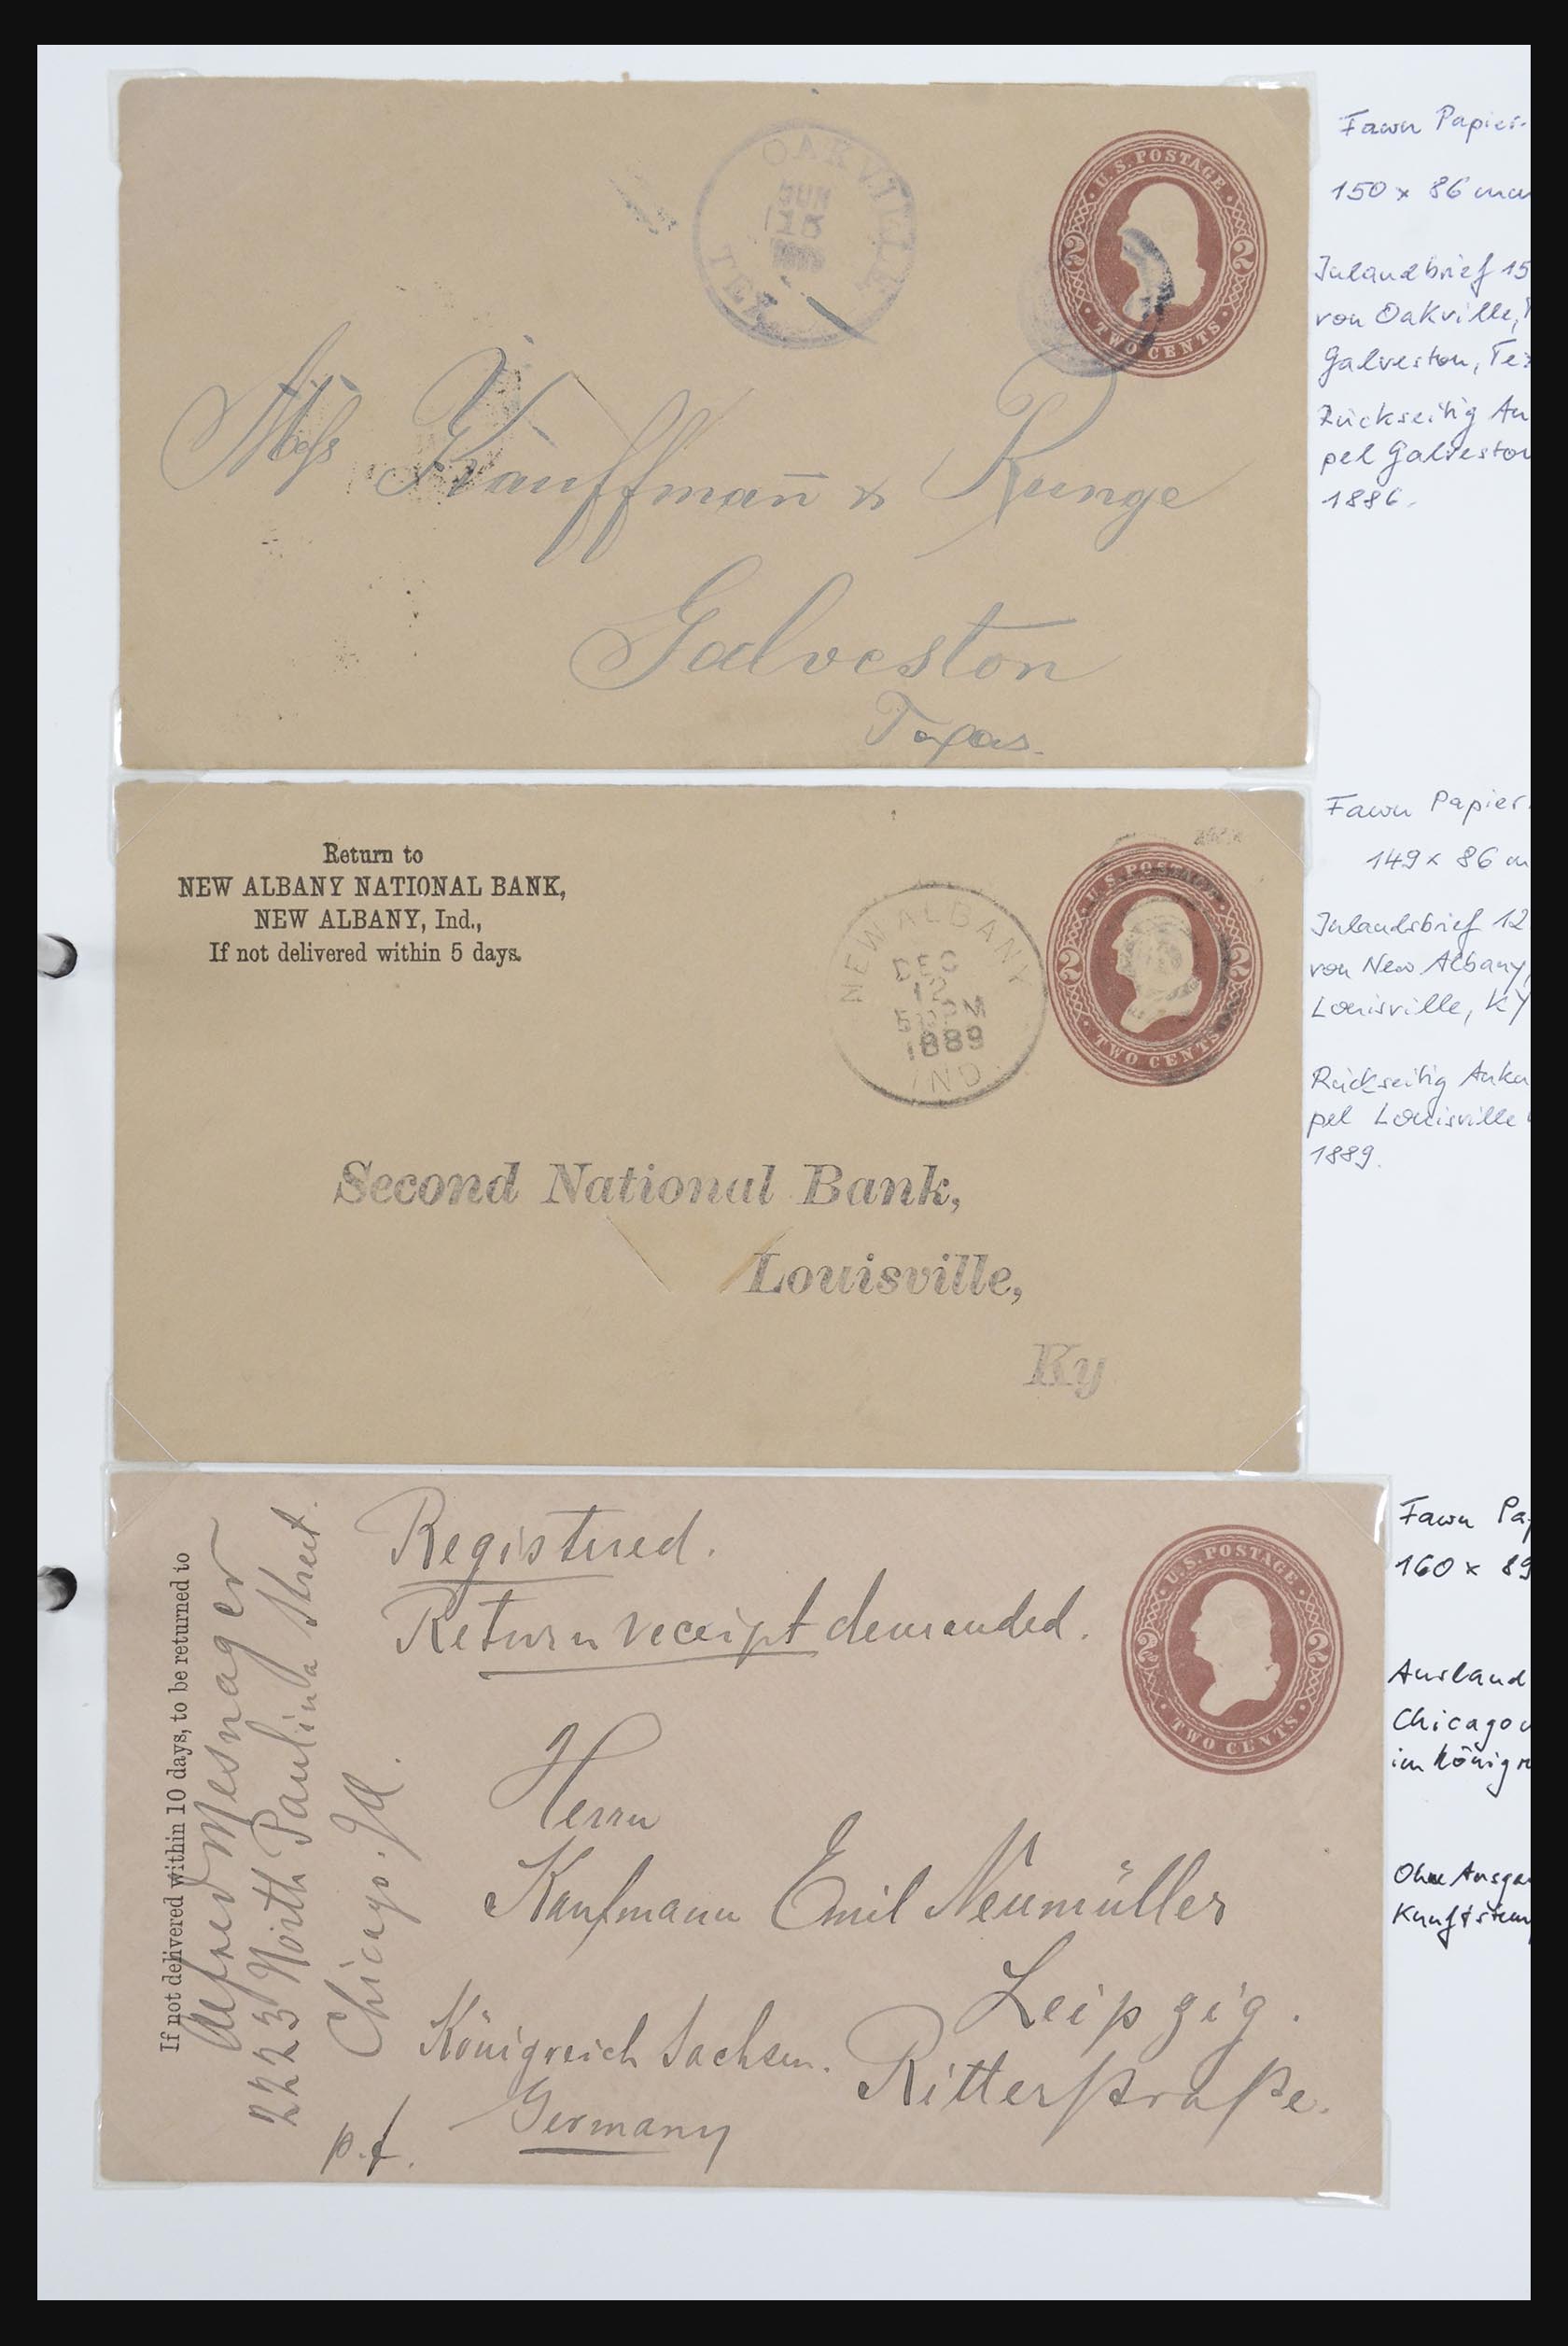 OAKVILLE
JUN
15
TEX.
U.S. POSTAGE
2 2
TWO CENTS
Kauffman̄ & Runge
Galveston
Texas.
Fawn Papier-
150 x 86 mm
Inlandbrief 15
von Oakville,
Galveston, Tex
Rückseitig An
pel Galveston
1886.
Return to
NEW ALBANY NATIONAL BANK,
NEW ALBANY, Ind.,
If not delivered within 5 days.
NEW ALBANY
DEC
12
1889
IND.
U.S. POSTAGE
2 2
TWO CENTS
Second National Bank,
Louisville,
Ky
Fawn Papier.
149 x 86 m
Inlandsbrief 12
von New Albany,
Louisville, KY
Rückseitig Anku
pel Louisville
1889.
If not delivered within 10 days, to be returned to
Alfred Mesnager
2223 North Paulina Street.
Chicago. Ill.
Registered.
Return receipt demanded.
U.S. POSTAGE
2 2
TWO CENTS
Herrn
Kaufmann Emil Neumüller
Leipzig.
Königreich Sachsen. Ritterstraße.
Germany
p.f.
Fawn Pa
160 x 89
Ausland
Chicago
im Königr
Ohne Ausga
kunftstem